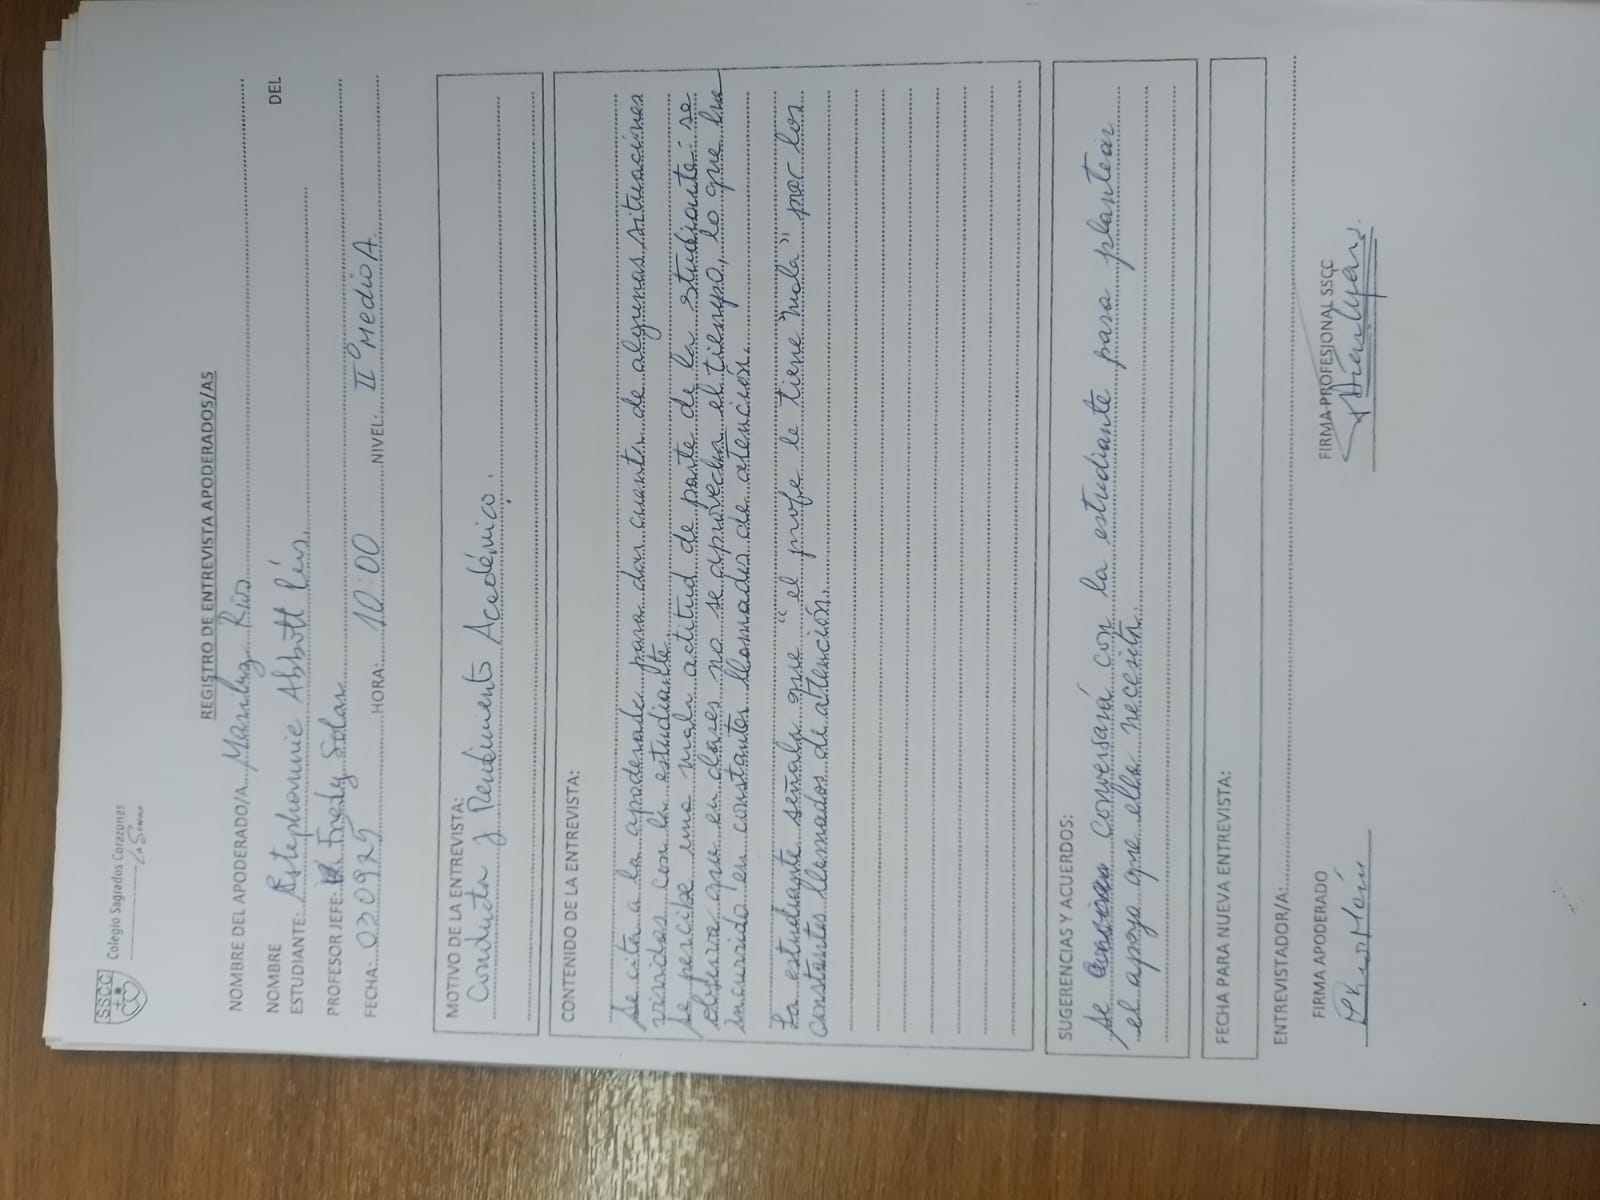 SSCC
Colegio Sagrados Corazones
REGISTRO DE ENTREVISTA APODERADOS/AS
NOMBRE DEL APODERADO/A Mariluz Ríos
NOMBRE DEL
ESTUDIANTE: Estephannie Abbott Ríos
PROFESOR JEFE: Fredy Solar
FECHA: 030925 HORA: 10:00 NIVEL: II° MEDIO A
MOTIVO DE LA ENTREVISTA:
Conducta y Rendimiento Académico.
CONTENIDO DE LA ENTREVISTA:
Se cita a la apoderada para dar cuenta de algunas situaciones
vividas con la estudiante.
Se percibe una mala actitud de parte de la estudiante: se
observa que en clases no se aprovecha el tiempo, lo que ha
incurrido en constantes llamados de atención.
La estudiante señala que "el profe le tiene mala" por los
constantes llamados de atención.
SUGERENCIAS Y ACUERDOS:
Se conversará con la estudiante para plantear
el apoyo que ella necesita.
FECHA PARA NUEVA ENTREVISTA:
ENTREVISTADOR/A:
FIRMA APODERADO FIRMA PROFESIONAL SSCC